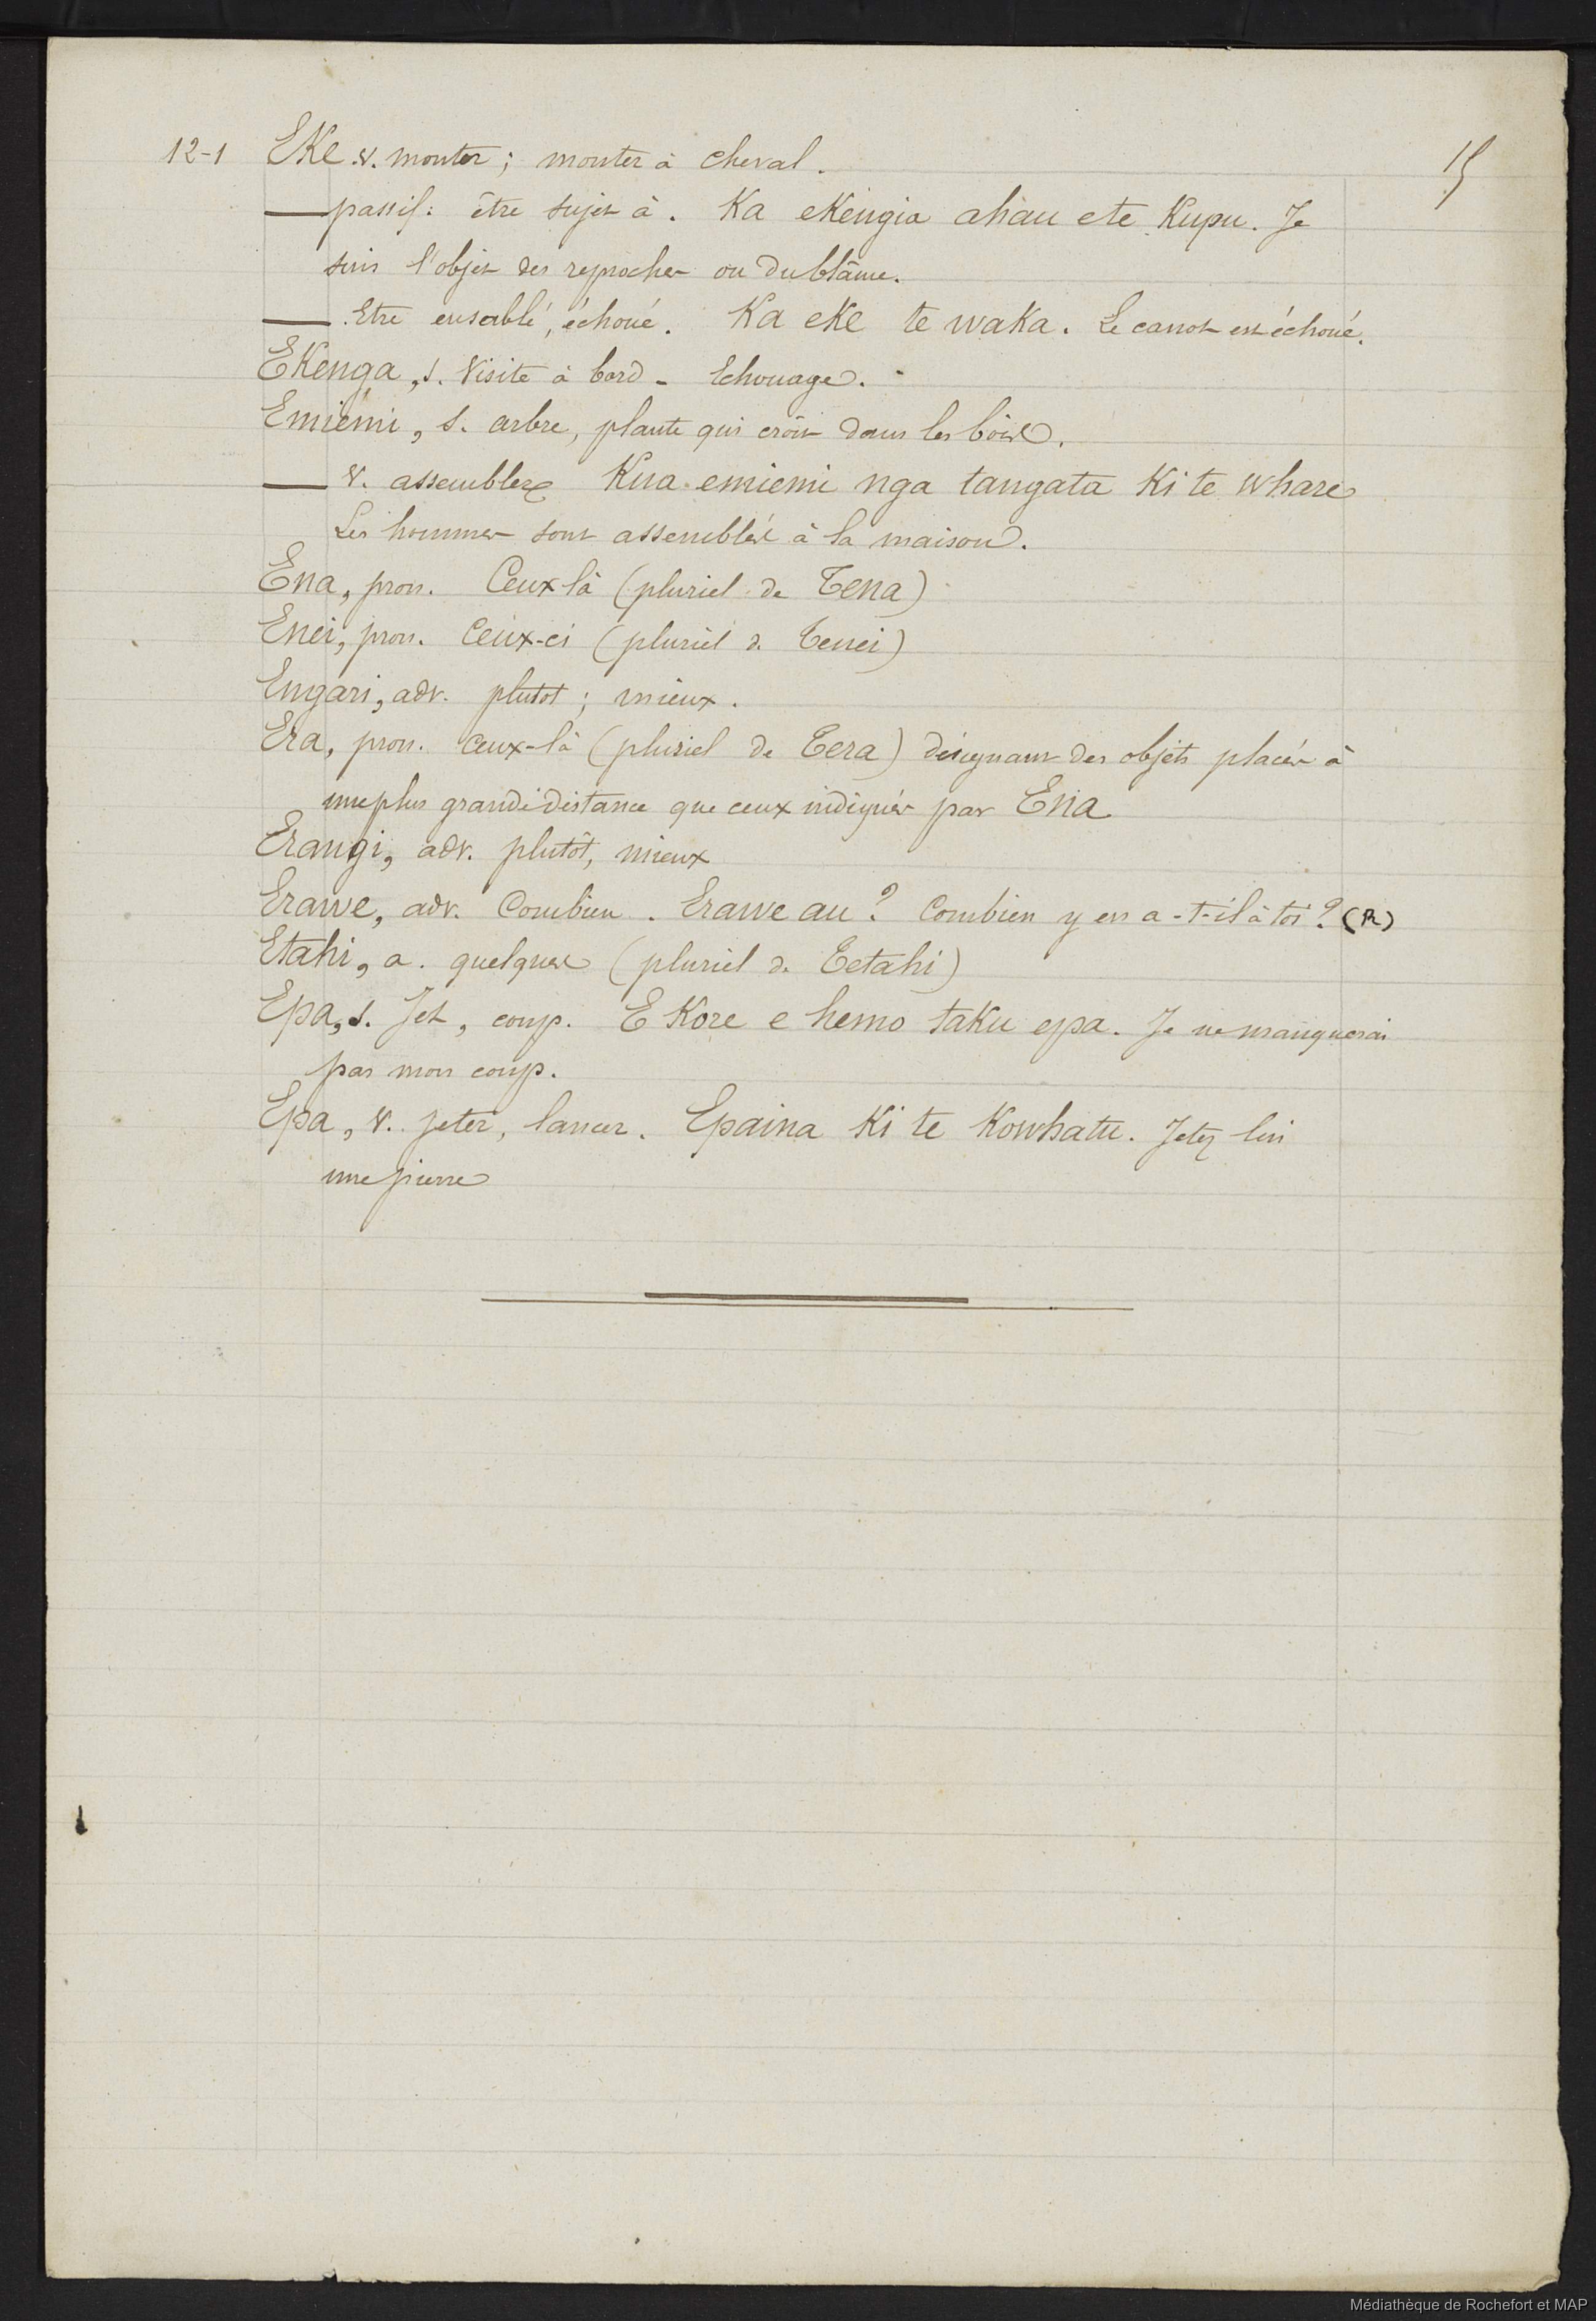 12-1 Eke v. monter ; monter à cheval.
15
— passif: être sujet à. Ka ekengia ahau e te Kupu. Je
suis l'objet des reproches ou du blâme.
— Etre ensablé, échoué. Ka eke te waka. Le canot est échoué.
Ekenga, s. Visite à bord - Echouage.
Emiemi, s. arbre, plante qui croît dans les bois.
— v. assembler Kua emiemi nga tangata ki te whare
Les hommes sont assemblés à la maison.
Ena, pron. Ceux-là (pluriel de Tena)
Enei, pron. Ceux-ci (pluriel de Tenei)
Engari, adv. plutot ; mieux.
Era, pron. Ceux-là (pluriel de Tera) désignant des objets placés à
une plus grande distance que ceux indiqués par Ena
Erangi, adv. plutôt, mieux
Erawe, adv. Combien. Erawe au ? Combien y en a-t-il à toi ? (R)
Etahi, a. quelques (pluriel de Tetahi)
Epa, s. Jet, coup. E Kore e hemo taku epa. Je ne manquerai
pas mon coup.
Epa, v. jeter, lancer. Epaina Ki te Kowhatu. Jetez lui
une pierre
Médiathèque de Rochefort et MAP